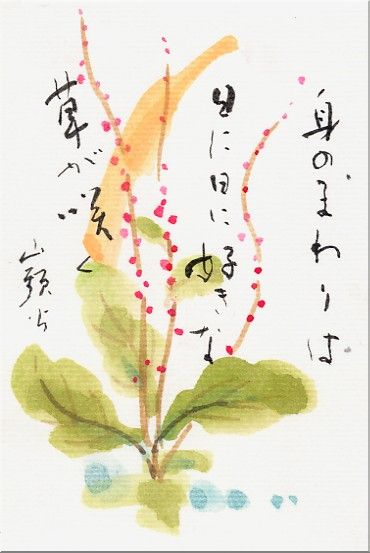 身のまわりは
日に日に好きな
草が咲く
山頭火